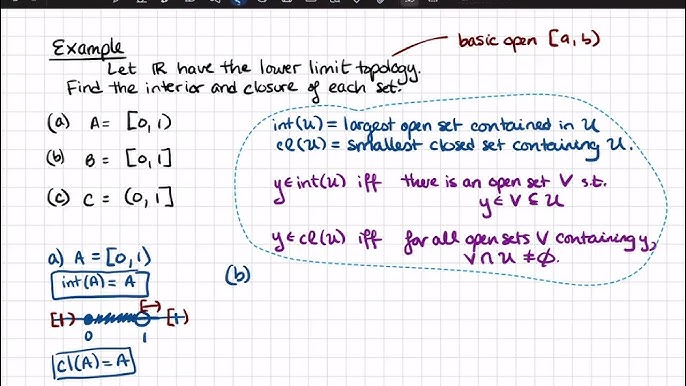 Example
basic open [a, b)
Let ℝ have the lower limit topology.
Find the interior and closure of each set.
(a) A = [0, 1)
(b) B = [0, 1]
(c) C = (0, 1]
int(U) = largest open set contained in U
cl(U) = smallest closed set containing U.
y ∈ int(U) iff there is an open set V s.t.
y ∈ V ⊆ U
y ∈ cl(U) iff for all open sets V containing y,
V ∩ U ≠ ∅.
a) A = [0, 1)
int(A) = A
0 1
cl(A) = A
(b)